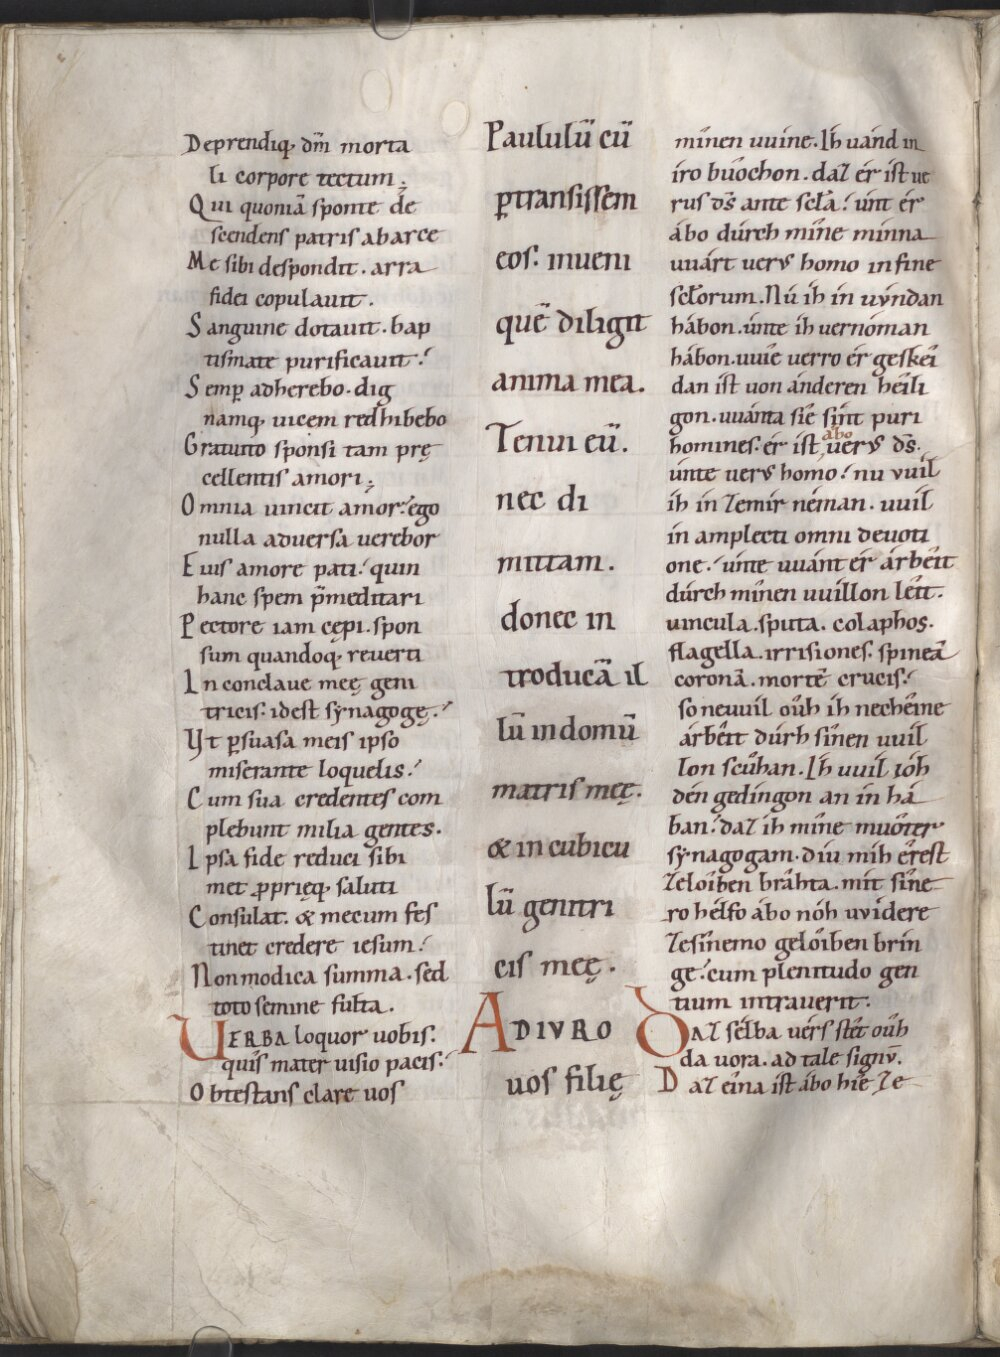 Deprendiq, dm̄ morta
li corpore tectum;
Qui quoniā sponte de
scendens patris ab arce
Me sibi despondit. arra
fidei copulauit.
Sanguine dotauit. bap
tismate purificauit:
Semꝑ adherebo. dig
namq, uicem redhibebo
Gratuito sponsi tam prę
cellentis amori;
Omnia uincit amor: ego
nulla aduersa uerebor
Eius amore pati: quin
hanc spem p̄meditari
Pectore iam cępi. spon
sum quandoq, reuerti
In conclaue meę geni
tricis. id est synagogę.
Vt ꝑsuasa meis ipso
miserante loquelis.
Cum sua credentes com
plebunt milia gentes.
Ipsa fide reduci sibi
met ꝓprięq, saluti
Consulat. & mecum fes
tinet credere iesum.
Non modica summa. sed
toto semine fulta.
VERBA loquor uobis.
quis mater uisio pacis.
Obtestans clare uos
Paululū cū
ꝑtransissem
eos: inueni
quē diligit
anima mea.
Tenui eū.
nec di
mittam.
donec in
troducā il
lū in domū
matris meę.
& in cubicu
lū genitri
cis meę.
ADIVRO
uos filię
mı́nen uuine. Ih uánd in
iro buóchon. daz ér ist ue
rus ds̄ ante scła: únt ér
ábo dúrch mîne minna
uuárt uerus homo in fine
scłorum. Nú ih in uúndan
hábon. únte ih uernóman
hábon. uuîe uerro ér geskeî
dan ist uon ánderen heîli
gon. uuánta siê sint puri
homines: ér ist ábo uerus ds̄.
únte uerus homo: nu uuil
ih in zemir néman. uuil
in amplecti omni deuoti
one: únte uuánt ér árbeît
dúrch mı́nen uuı́llon leît.
uincula. sputa. colaphos.
flagella. irrisiones. spineā
coronā. mortē crucis:
so neuuil oûh ih necheîne
árbeît dúrh sı̂nen uuil
lon scûhan. Ih uuil ióh
dén gedingon an in há
ban: daz ih mîne muôter
synagogam. diu mih êrest
zeloîben brâhta. mit sîne
ro hélfo ábo nóh uuidere
zesînemo geloîben brin
ge: cum plenitudo gen
tium intrauerit.
Daz sélba uérs stêt oûh
da uora. ad tale signū.
Daz eîna ist ábo hîe ze